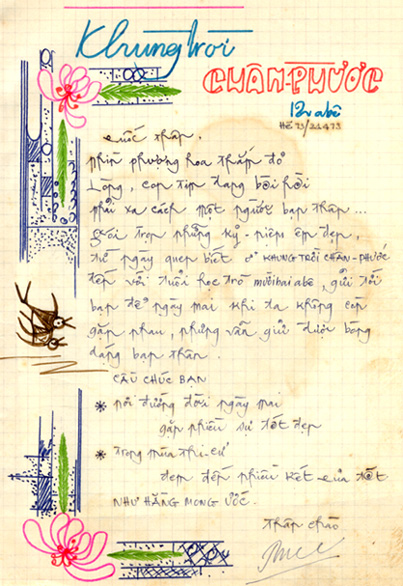 Khung trời
CHÂN-PHƯỚC
12 abê
Hè 73/
Quốc thân,
nhìn phượng hoa thắp đỏ
Lòng, con tim đang bồi hồi
phải xa cách một người bạn thân ...
gói trọn những kỷ-niệm êm đẹp,
từ ngày quen biết ở KHUNG TRỜI CHÂN-PHƯỚC
đến với tuổi học trò mười hai abê, gửi tới
bạn để ngày mai khi ta không còn
gặp nhau, nhưng vẫn giữ được bóng
dáng bạn thân.
CẦU CHÚC BẠN
* nơi đường đời ngày mai
gặp nhiều sự tốt đẹp
* trong mùa thi-cử
đem đến nhiều kết quả tốt
NHƯ HẰNG MONG ƯỚC.
thân chào